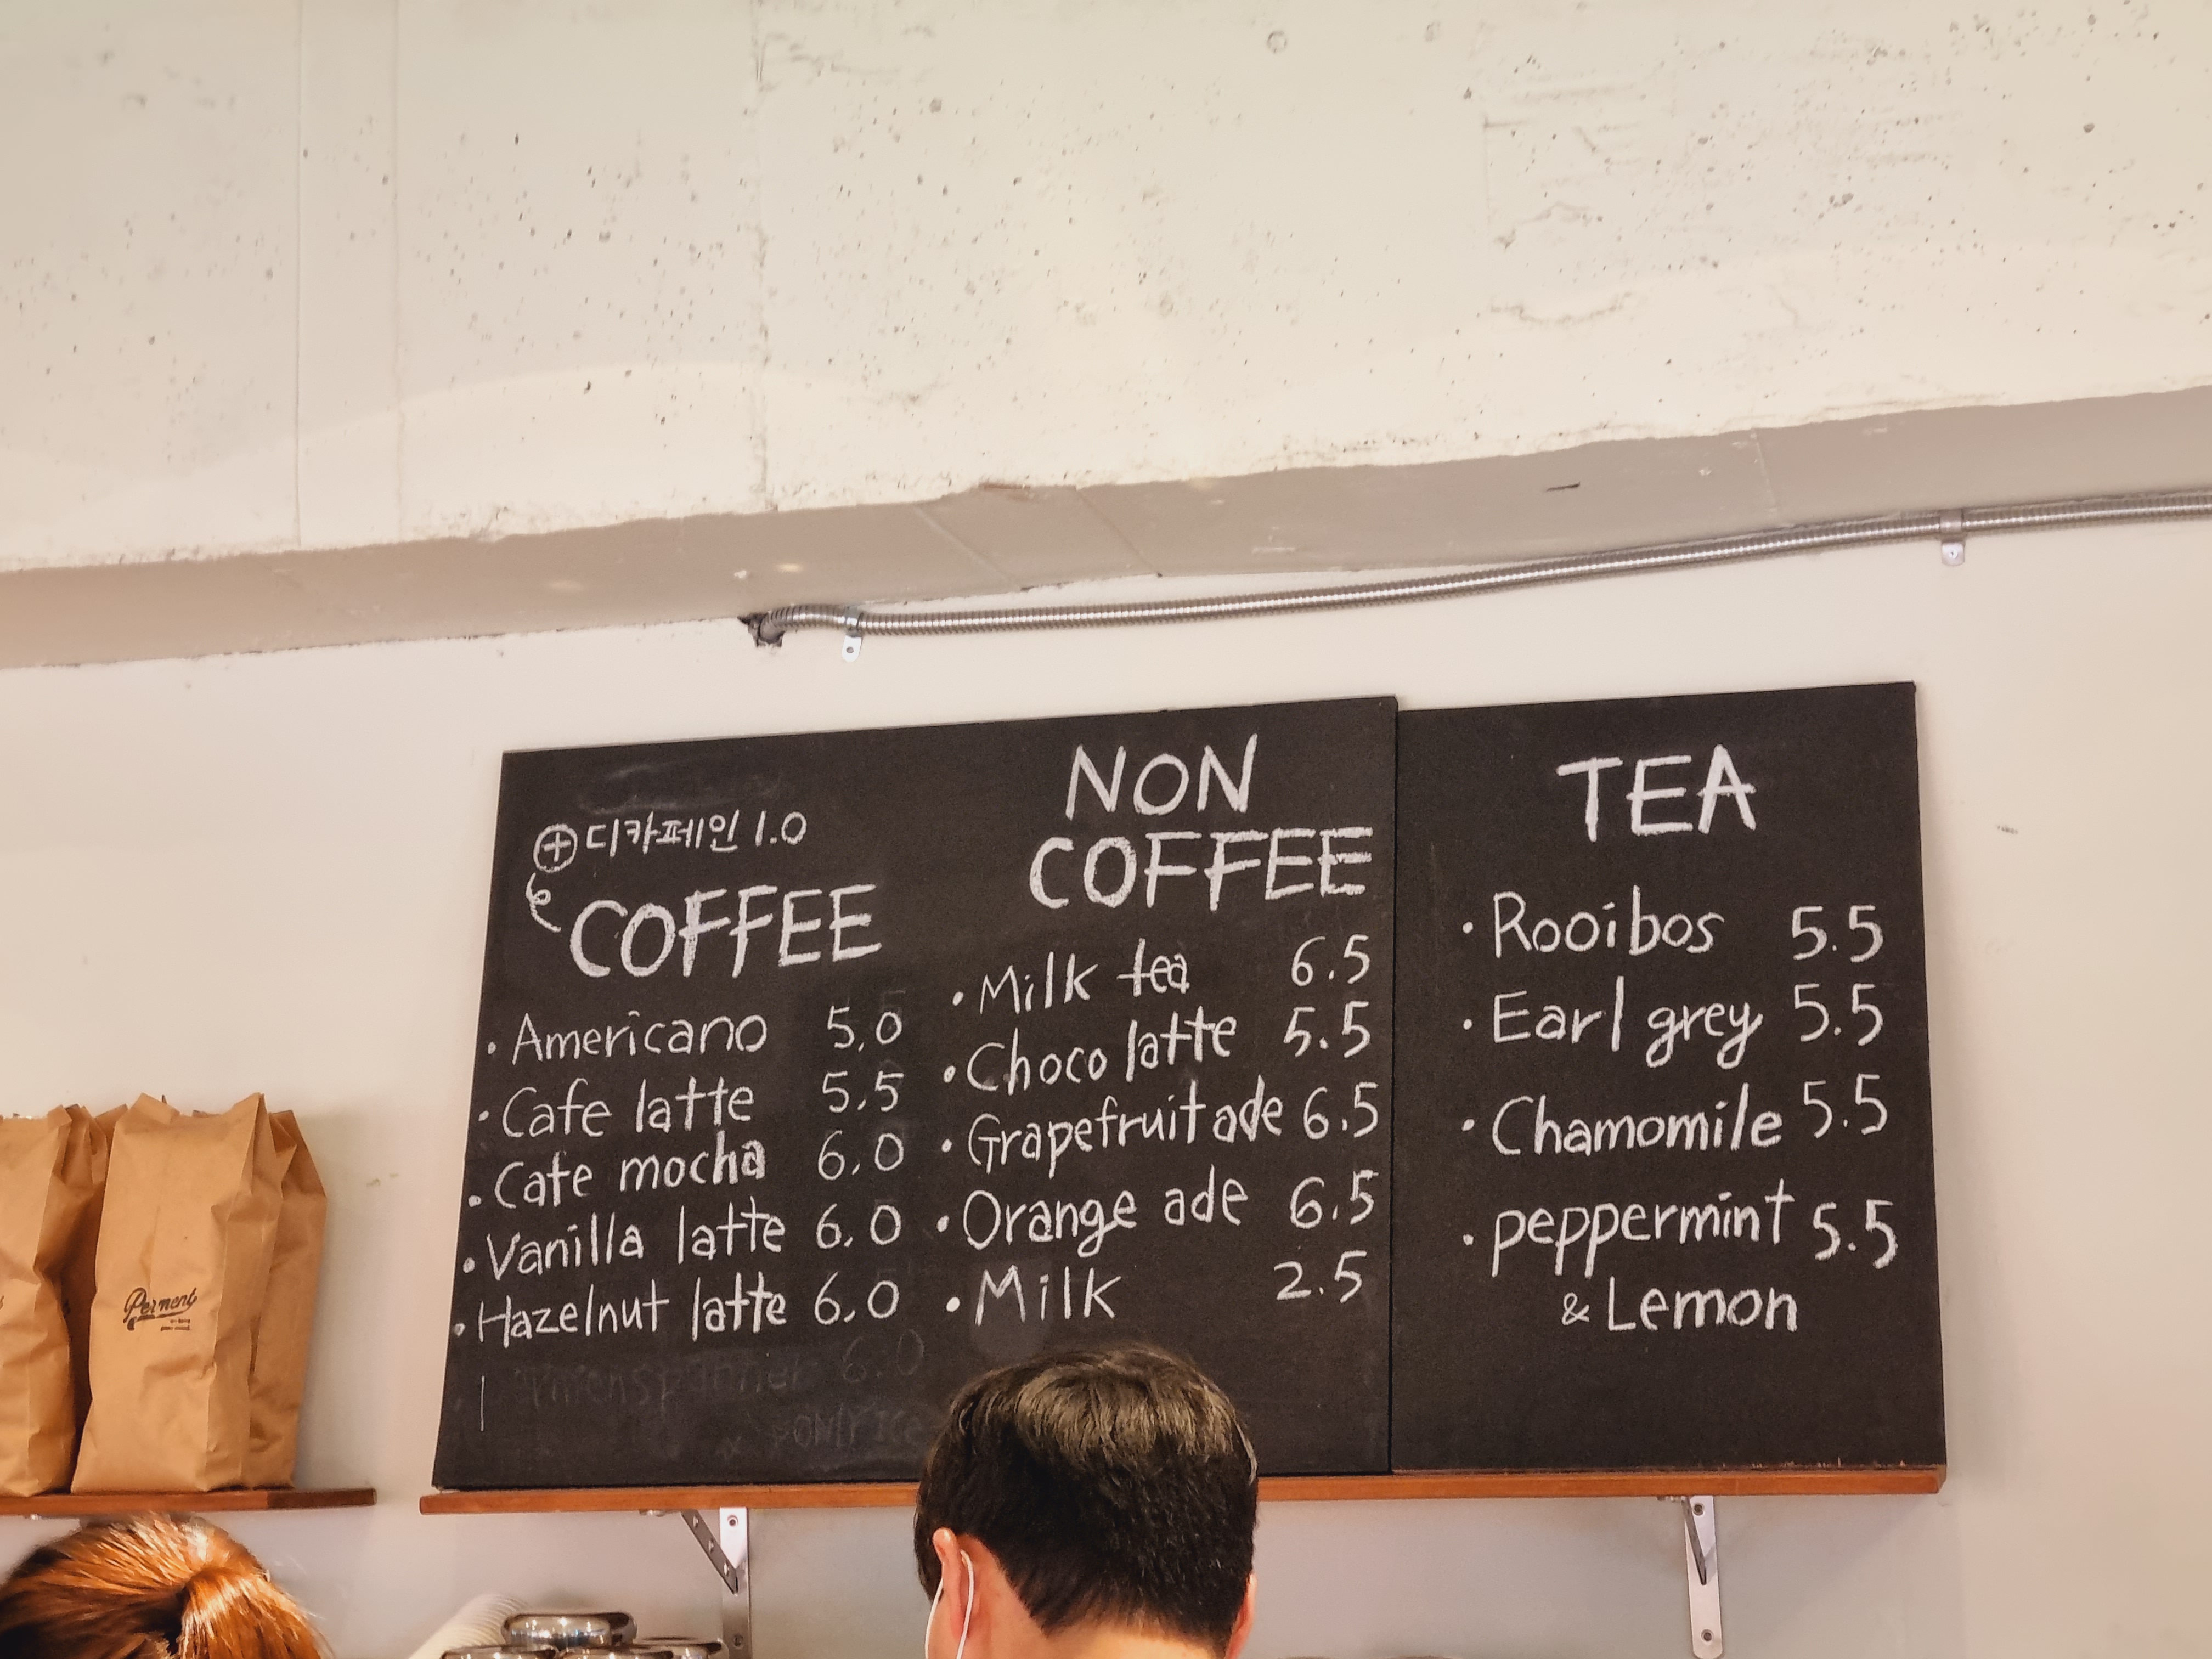 ⊕디카페인 1.0
COFFEE
· Americano 5.0
· Cafe latte 5.5
· Cafe mocha 6.0
· Vanilla latte 6.0
· Hazelnut latte 6.0
6.0
NON
COFFEE
· Milk tea 6.5
· Choco latte 5.5
· Grapefruit ade 6.5
· Orange ade 6.5
· Milk 2.5
TEA
· Rooibos 5.5
· Earl grey 5.5
· Chamomile 5.5
· peppermint 5.5
& Lemon